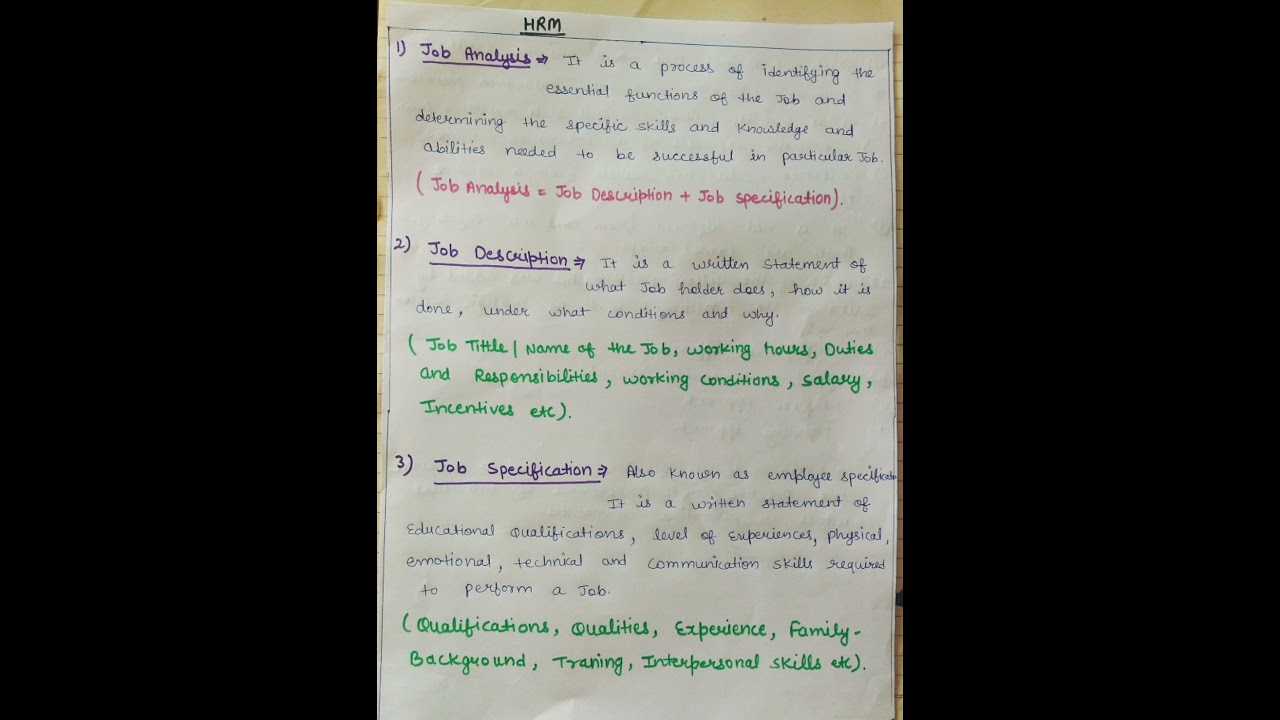 HRM
1) Job Analysis ⇒ It is a process of identifying the
essential functions of the Job and
determining the specific skills and knowledge and
abilities needed to be successful in particular Job.
( Job Analysis = Job Description + Job specification).
2) Job Description ⇒ It is a written statement of
what Job holder does, how it is
done, under what conditions and why.
( Job Tittle | Name of the Job, working hours, Duties
and Responsibilities, working conditions, salary,
Incentives etc).
3) Job Specification ⇒ Also known as employee specificatn
It is a written statement of
Educational Qualifications, level of Experiences, physical,
emotional, technical and communication skills required
to perform a Job.
(Qualifications, Qualities, Experience, Family-
Background, Traning, Interpersonal skills etc).